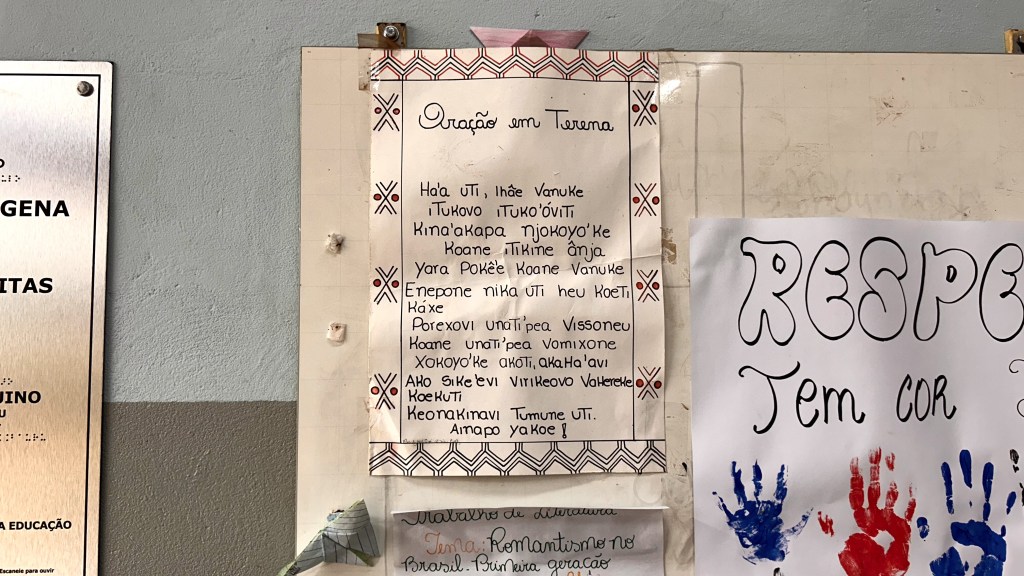 GENA
ITAS
UINO
A EDUCAÇÃO
Escaneie para ouvir
Oração em Terena
Ha'a UTI, Ihâe Vanuke
iTUKOVO iTUKO'ÓVITI
Kina'akapa njokoyo'ke
Koane iTikine ânja
Yara Pokê'e Koane Vanuke
Enepone nika UTI heu Koeti
Káxe
Porexovi unati'pea Vissoneu
Koane unati'pea vomixone
Xokoyo'ke akoti, akaHa'avi
Ako Sike'evi Virikeovo Vakereke
Koekuti
Keonakinavi Tumune UTI.
Ainapo yakoe!
Trabalho de Literatura
Tema: Romantismo no
Brasil. Primeira geração
RESPE
Tem COR